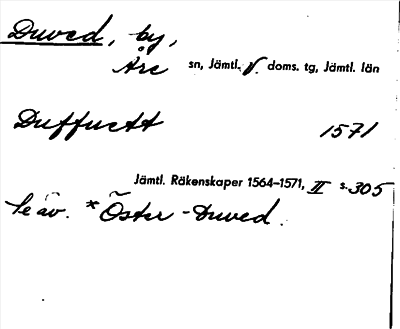 Duved, by,
Åre sn, Jämtl. v. doms. tg, Jämtl. län
Duffuett 1571
Jämtl. Räkenskaper 1564–1571, II s. 305
Se äv. * Öster-Duved.